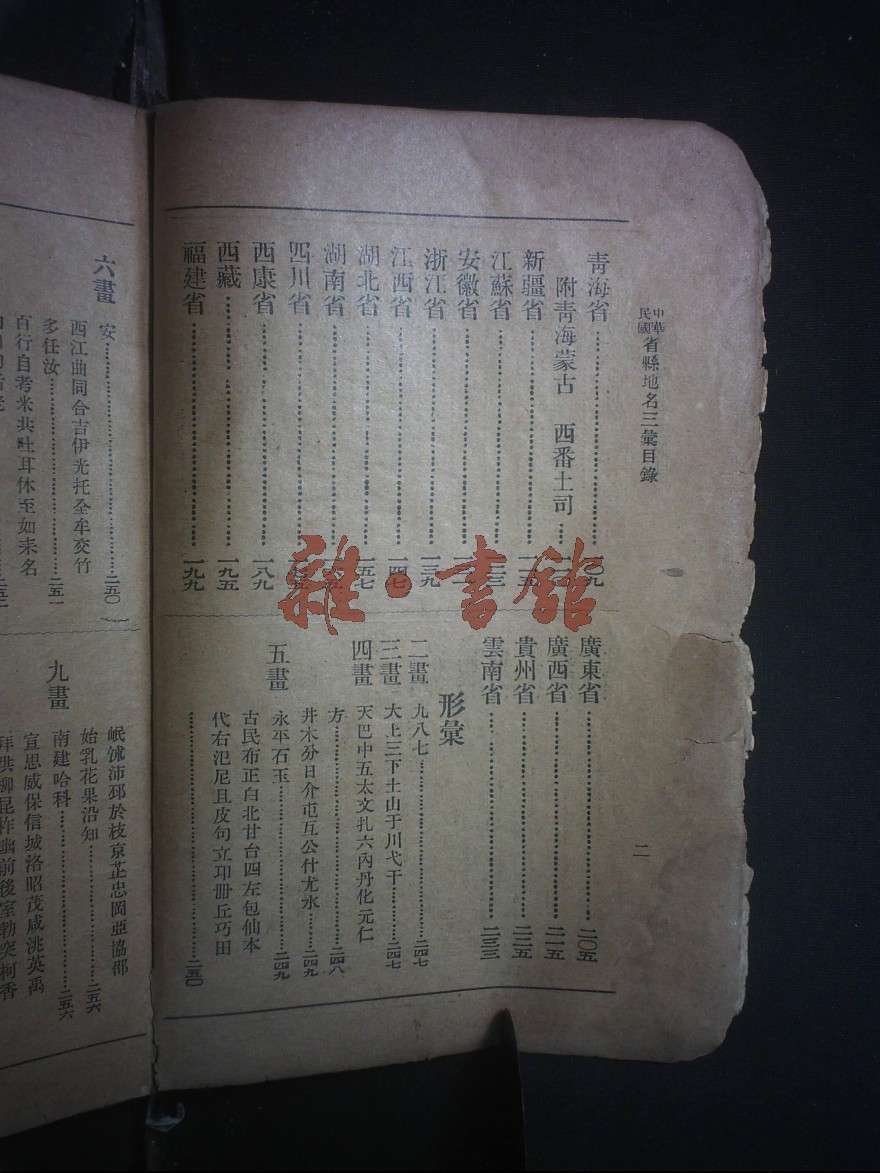 中華民國省縣地名三彙目錄
二
青海省……一〇九
附青海蒙古　西番土司……
新疆省……
江蘇省……
安徽省……
浙江省……一三九
江西省……一四七
湖北省……一五七
湖南省……
四川省……
西康省……一八九
西藏……一九五
福建省……一九九
廣東省……二〇五
廣西省……二一五
貴州省……二二五
雲南省……二三三
形彙
二畫　九八七……二四七
三畫　大上三下土山于川弋干……二四七
四畫　天巴中五太文扎六內丹化元仁
方……二四八
井木分日介屯互公什尤水……二四九
五畫　永平石玉……二四九
古民布正白北甘台四左包仙本
代右氾尼且皮句立卭册丘巧田
……二五〇
六畫　安……二五〇
西江曲同合吉伊光托全牟交竹
多任汝……二五一
百行自考米共吐耳休至如未名
岷沭沛邳於枝京芷忠岡亞協邵
始乳花果沿知……二五六
九畫　南建哈科……二五六
宣思威保信城洛昭茂咸洮英禹
柳昆柞幽前後室勃突柯香
雜·書館